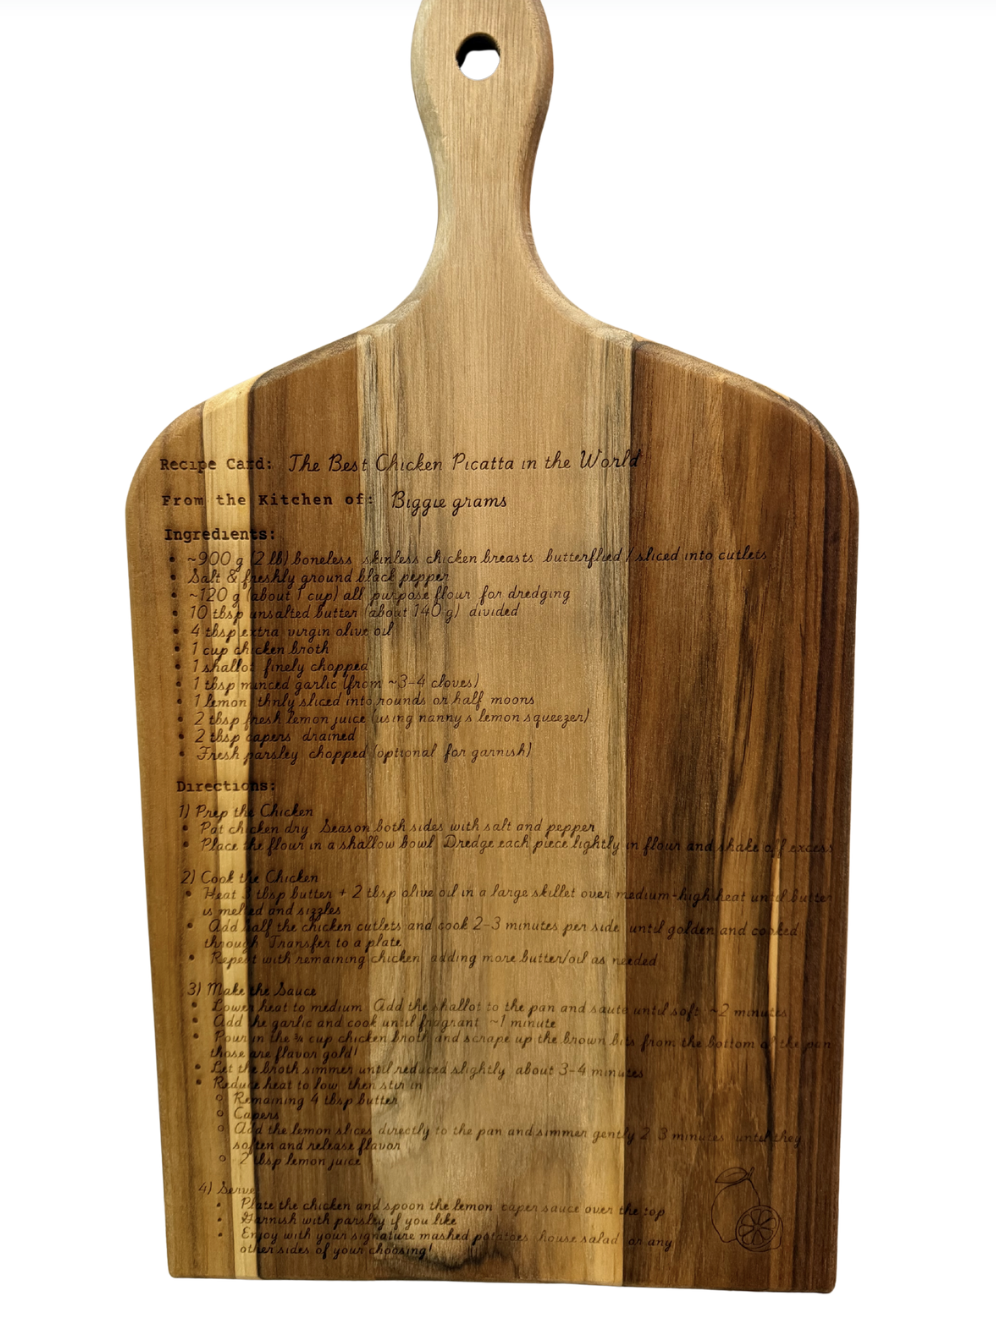 Recipe Card: The Best Chicken Picatta in the World
From the Kitchen of: Biggie grams
Ingredients:
• ~900 g (2 lb) boneless skinless chicken breasts butterflied / sliced into cutlets
• Salt & freshly ground black pepper
• ~120 g (about 1 cup) all purpose flour for dredging
• 10 tbsp unsalted butter (about 140 g) divided
• 4 tbsp extra virgin olive oil
• 1 cup chicken broth
• 1 shallot finely chopped
• 1 tbsp minced garlic (from ~3-4 cloves)
• 1 lemon thnly sliced into rounds or half moons
• 2 tbsp fresh lemon juice (using nanny s lemon squeezer)
• 2 tbsp capers drained
• Fresh parsley chopped (optional for garnish)
Directions:
1) Prep the Chicken
• Pat chicken dry Season both sides with salt and pepper
• Place the flour in a shallow bowl Dredge each piece lightly in flour and shake off excess
2) Cook the Chicken
• Heat tbsp butter + 2 tbsp olive oil in a large skillet over medium-high heat until butter
is melted and sizzles
• Add half the chicken cutlets and cook 2-3 minutes per side until golden and cooked
through Transfer to a plate
• Repeat with remaining chicken adding more butter/oil as needed
3) Make the Sauce
• Lower heat to medium Add the shallot to the pan and saute until soft ~2 minutes
• Add the garlic and cook until fragrant ~1 minute
• Pour in the ¾ cup chicken broth and scrape up the brown bits from the bottom of the pan
those are flavor gold!
• Let the broth simmer until reduced slightly about 3-4 minutes
• Reduce heat to low then stir in
○ Remaining 4 tbsp butter
○ Capers
○ Add the lemon slices directly to the pan and simmer gently 2 3 minutes until they
soften and release flavor
○ 2 tbsp lemon juice
4) Serve
• Plate the chicken and spoon the lemon caper sauce over the top
• Garnish with parsley if you like
• Enjoy with your signature mashed potatoes house salad or any
other sides of your choosing!